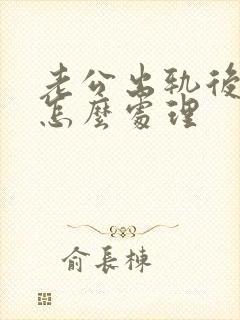 老公出轨後
怎麼處理
俞長棟